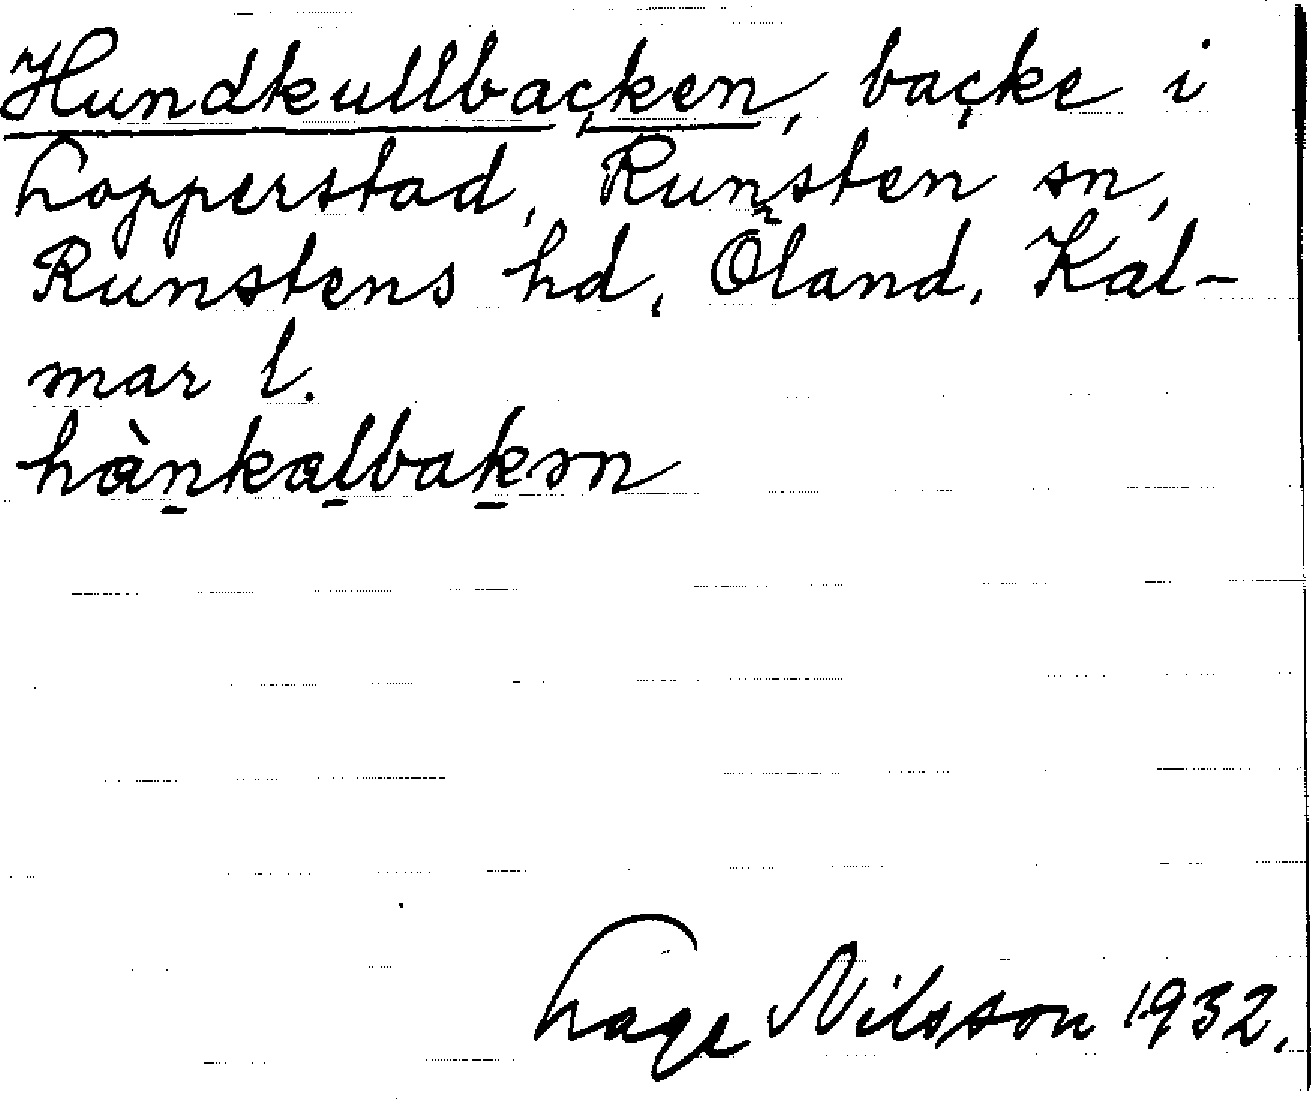 Hundkullbacken, backe i
Lopperstad, Runsten sn,
Runstens hd, Öland, Kal-
mar l.
hànkalbakɘn
Lage Nilsson 1932.